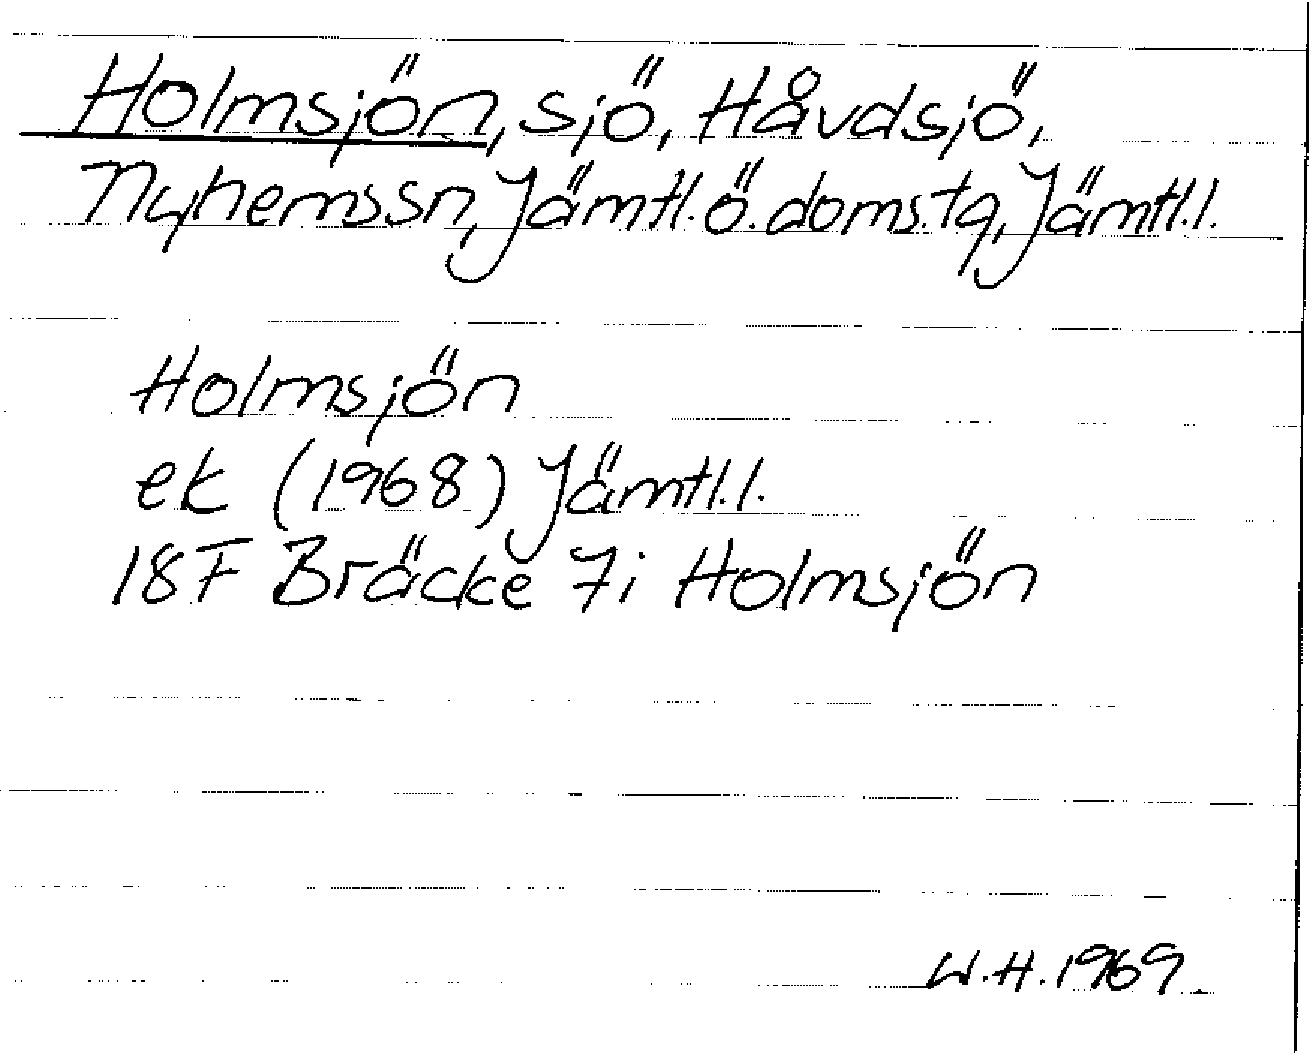 Holmsjön, sjö, Håvdsjö,
Nyhemssn, Jämtl.ö.doms.tg, Jämtl.l.
Holmsjön
ek (1968) Jämtl.l.
18F Bräcke 7i Holmsjön
W.H.1969.